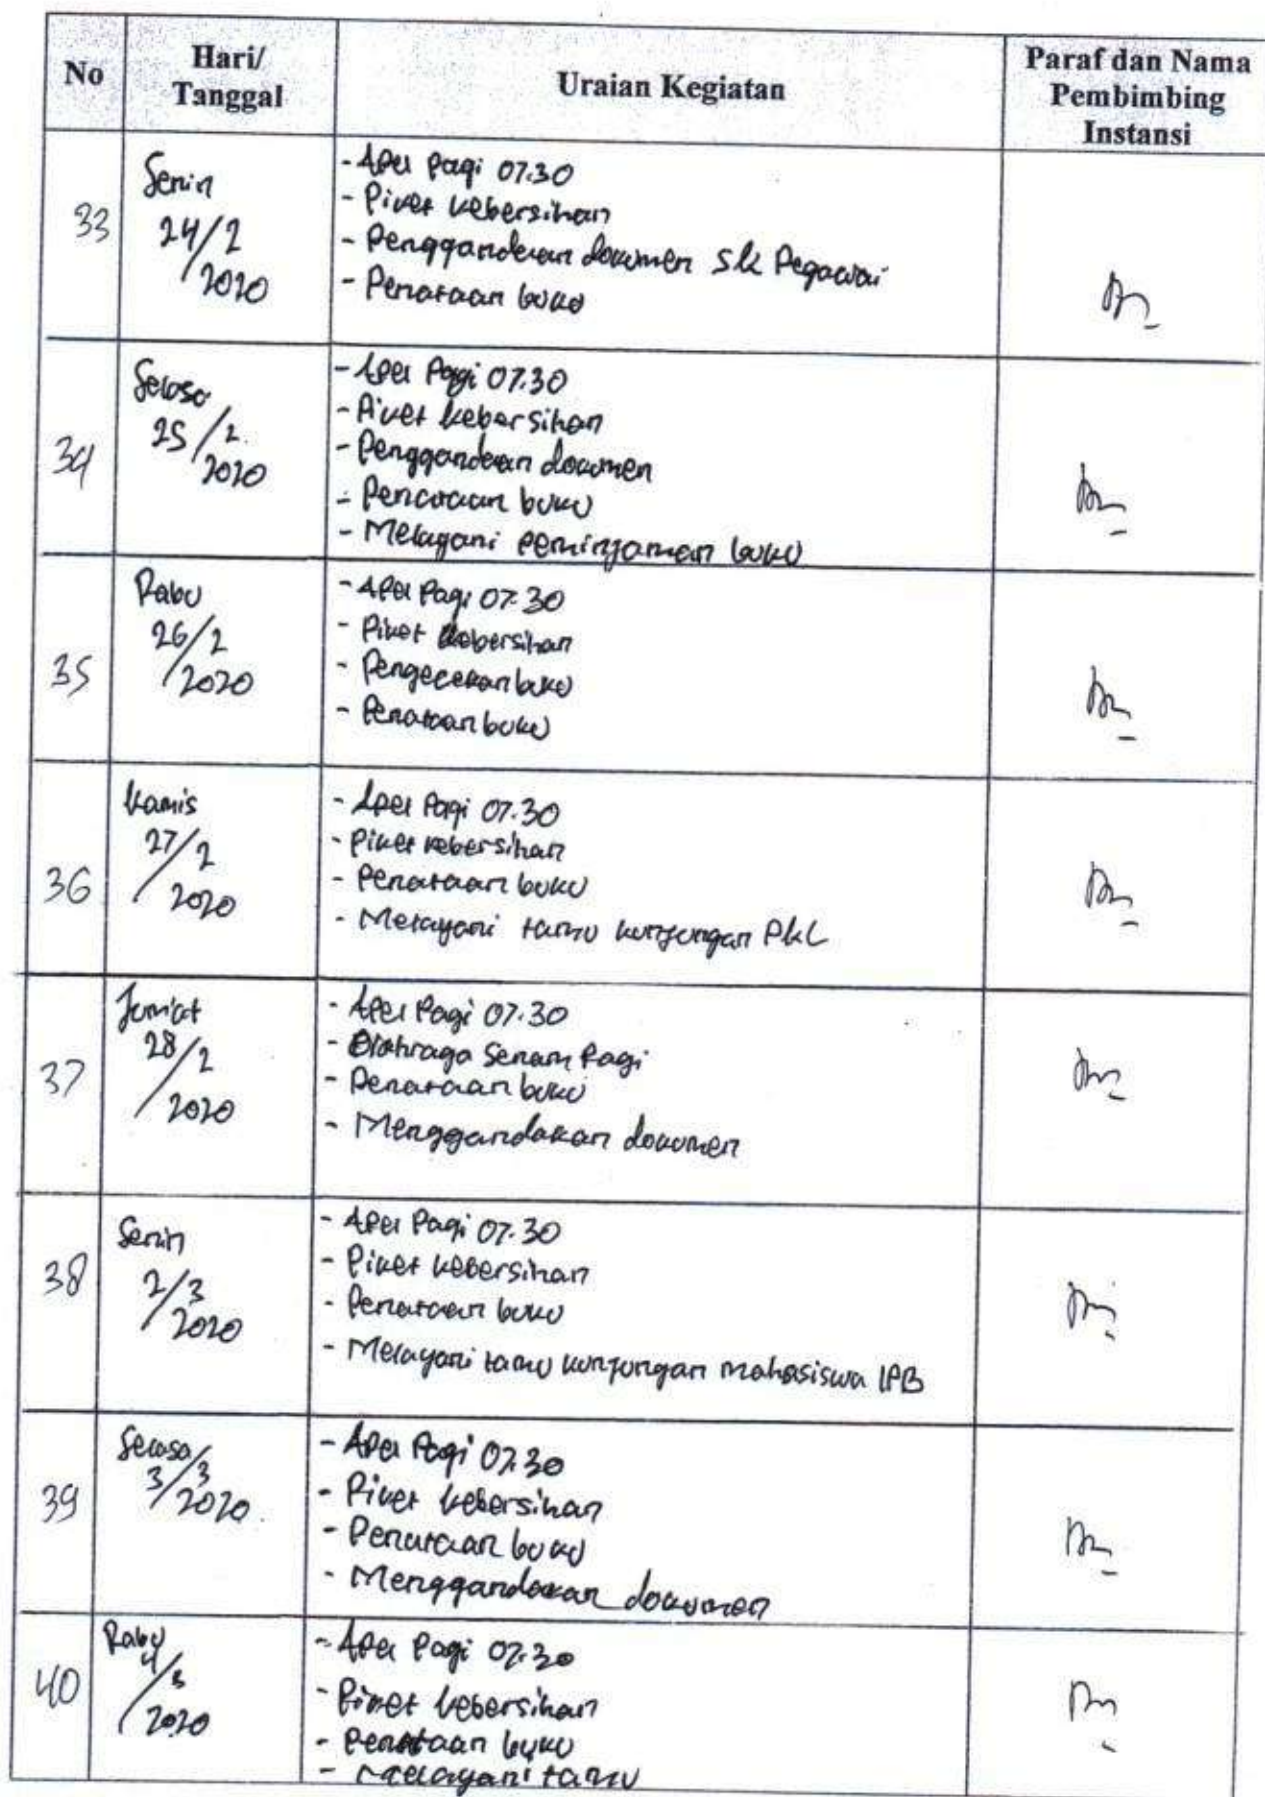 No
Hari/
Tanggal
Uraian Kegiatan
Paraf dan Nama
Pembimbing
Instansi
33
Senin
24/2
2020
- Apel Pagi 07.30
- Piket kebersihan
- Penggandaan dokumen SK Pegawai
- Penataan buku
34
Selasa
25/2
2020
- Apel Pagi 07.30
- Piket kebersihan
- Penggandaan dokumen
- Penataan buku
- Melayani peminjaman buku
35
Rabu
26/2
2020
- Apel Pagi 07.30
- Piket kebersihan
- Pengecekan buku
- Penataan buku
36
Kamis
27/2
2020
- Apel Pagi 07.30
- Piket kebersihan
- Penataan buku
- Melayani tamu kunjungan PKL
37
Jum'at
28/2
2020
- Apel Pagi 07.30
- Olahraga Senam Pagi
- Penataan buku
- Menggandakan dokumen
38
Senin
2/3
2020
- Apel Pagi 07.30
- Piket kebersihan
- Penataan buku
- Melayani tamu kunjungan mahasiswa IPB
39
Selasa
3/3
2020
- Apel Pagi 07.30
- Piket kebersihan
- Penataan buku
- Menggandakan dokumen
40
Rabu
4/3
2020
- Apel Pagi 07.30
- Piket kebersihan
- Penataan buku
- Melayani tamu